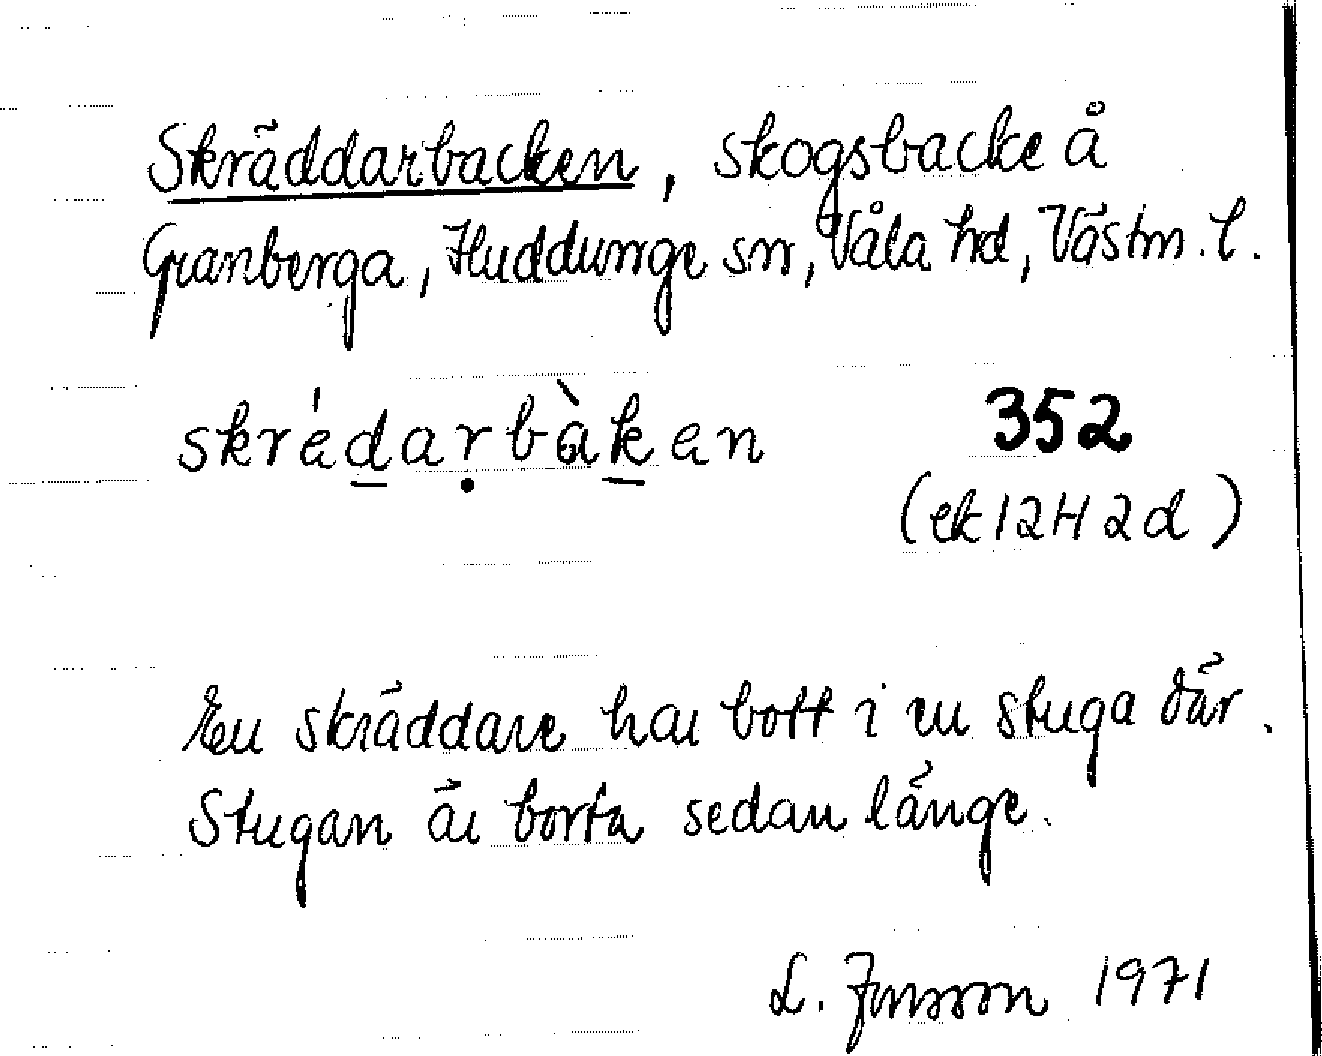 Skräddarbacken, skogsbacke å
Granberga, Huddunge sn, Våla hd, Västm. l.
skrédarbàken 352
(ek 12H 2d)
En skräddare har bott i en stuga där.
Stugan är borta sedan länge.
L. Jonsson 1971